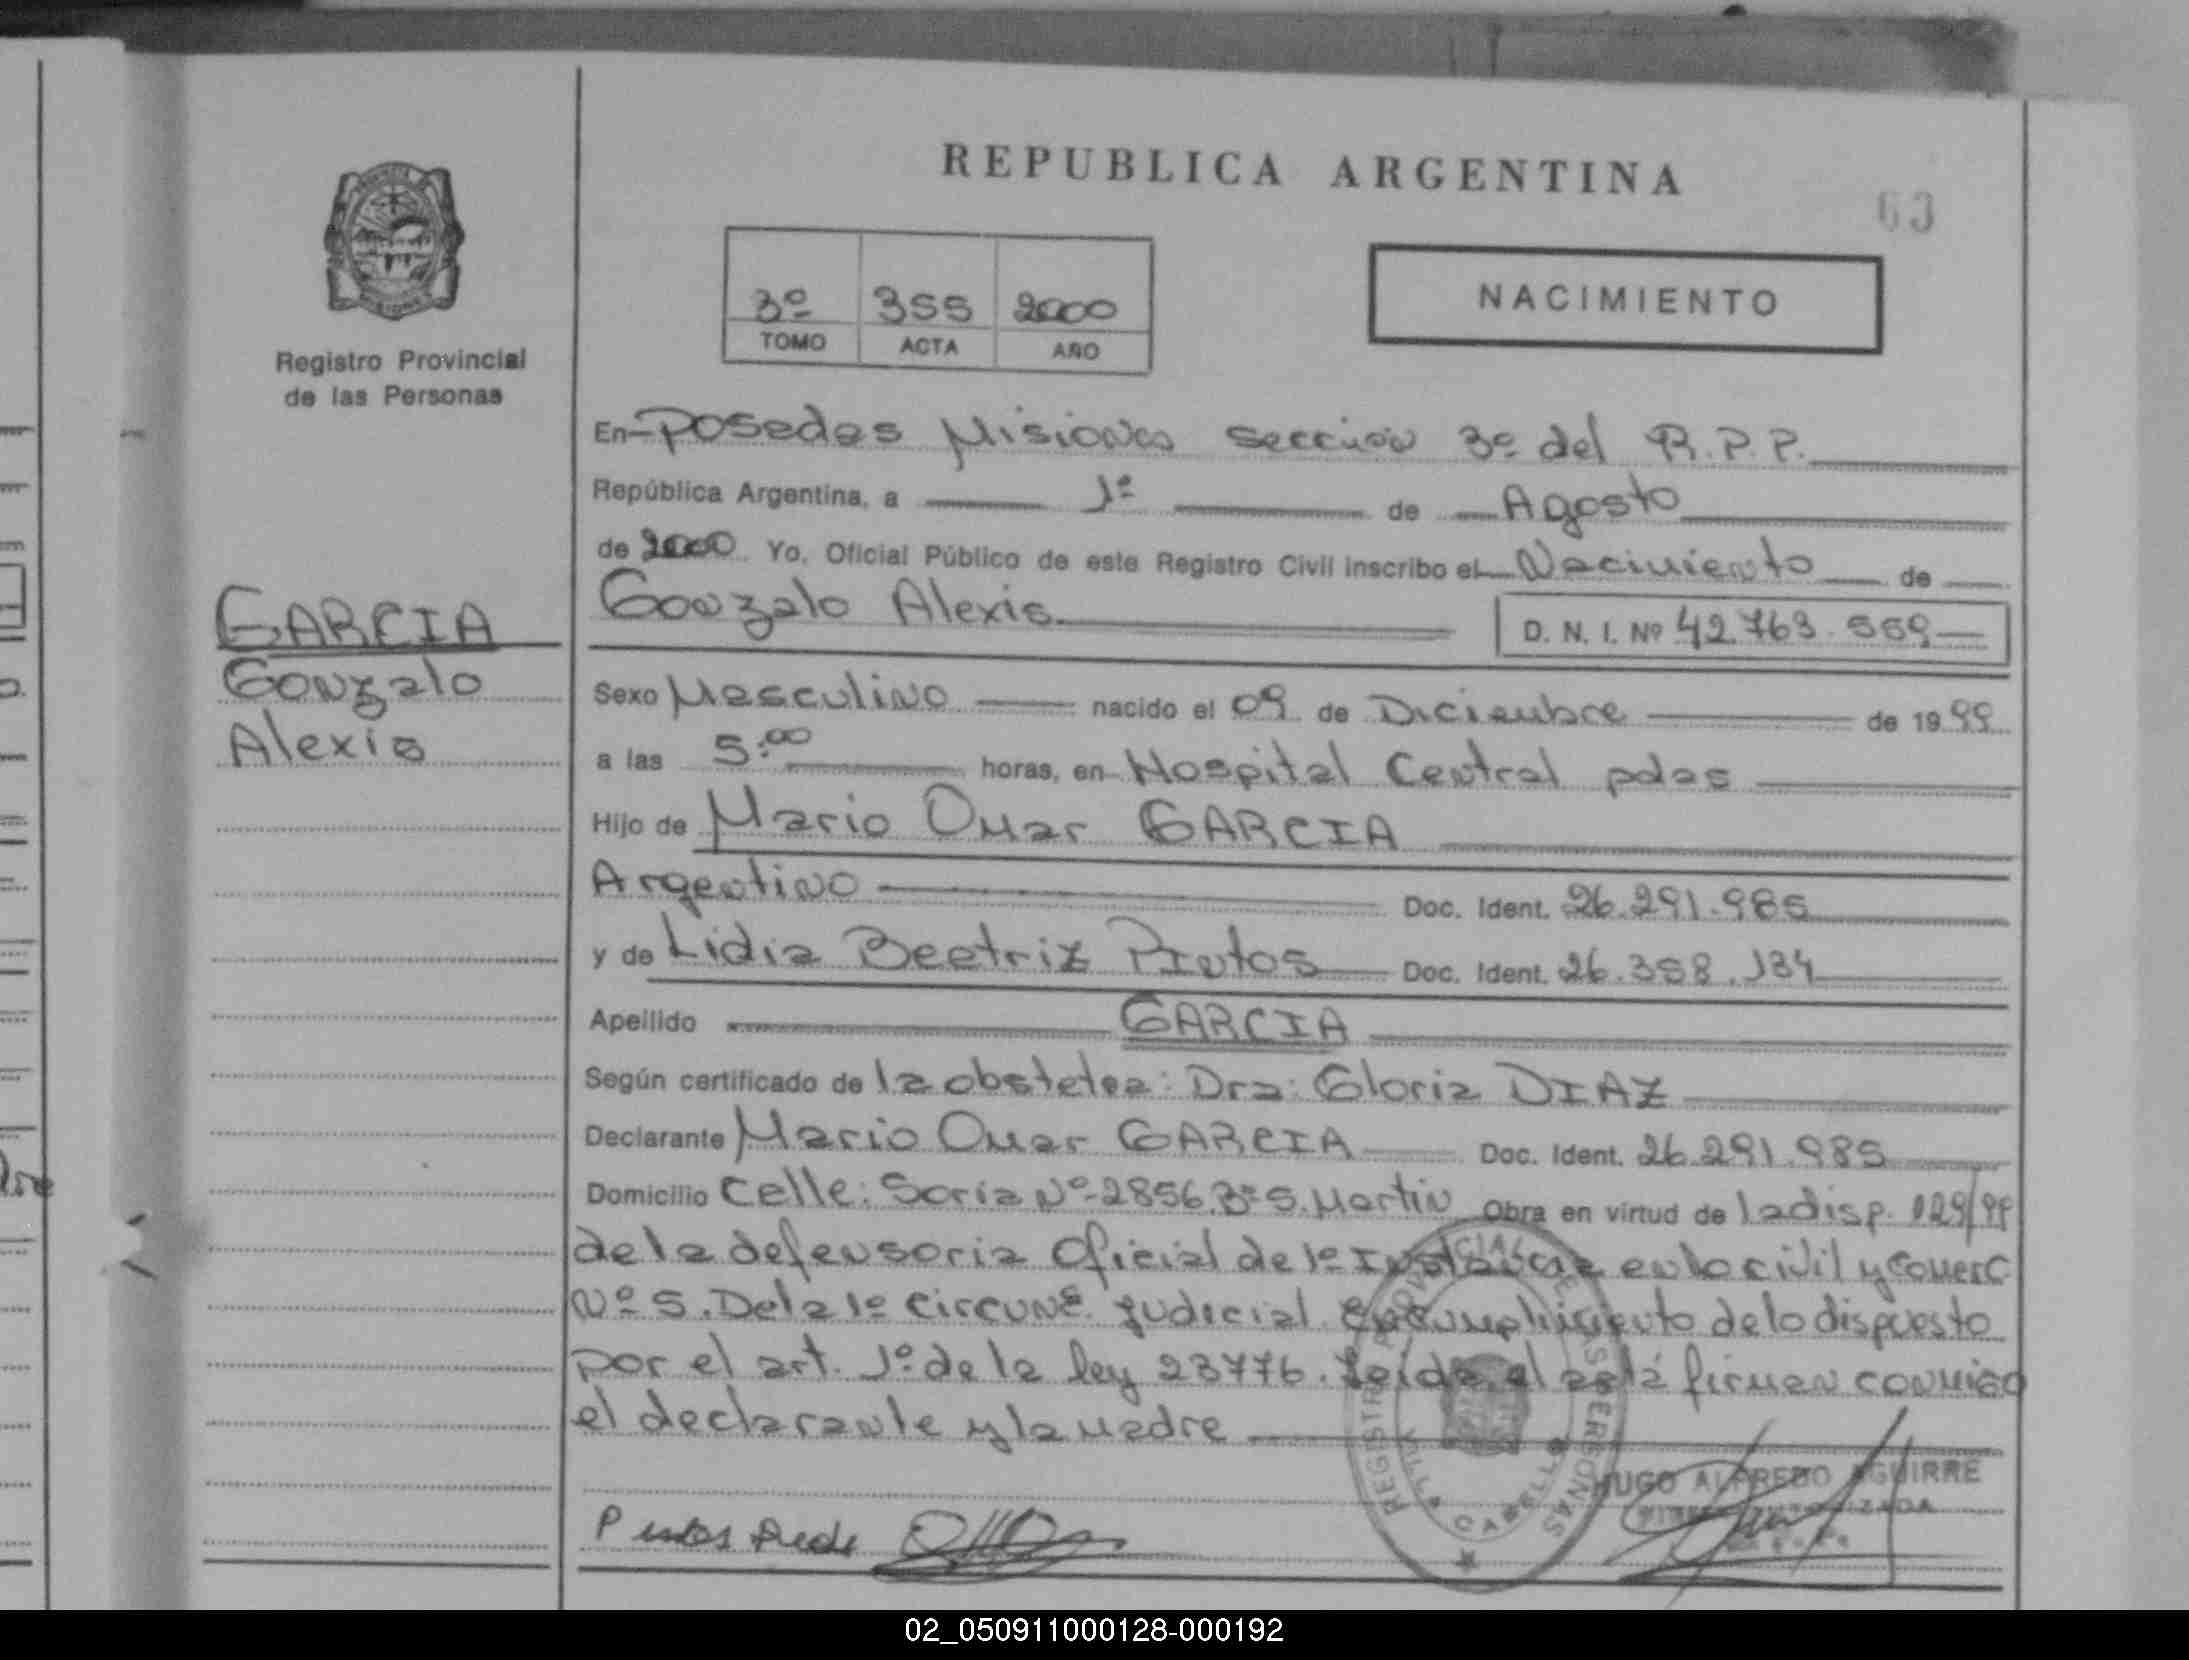 REPUBLICA ARGENTINA
63
3º 355 2000
TOMO ACTA AÑO
NACIMIENTO
Registro Provincial
de las Personas
GARCIA
Gonzalo
Alexis
En Posadas Misiones sección 3º del R.P.P.
República Argentina, a 1º de Agosto
de 2000 Yo, Oficial Público de este Registro Civil inscribo el Nacimiento de
Gonzalo Alexis D. N. I. Nº 42.763.559
Sexo Masculino nacido el 09 de Diciembre de 1999
a las 5:00 horas, en Hospital Central pdas
Hijo de Mario Omar GARCIA
Argentino Doc. Ident. 26.291.985
y de Lidia Beatriz Pintos Doc. Ident. 26.358.134
Apellido GARCIA
Según certificado de la obstetra: Dra: Gloria DIAZ
Declarante Mario Omar GARCIA Doc. Ident. 26.291.985
Domicilio Calle: Soria Nº 2856. Bº S. Martin Obra en virtud de la disp. 129/99
de la defensoria Oficial de 1º Instancia en lo civil y Comerc
Nº 5. De la 1º Circunc. Judicial En cumplimiento de lo dispuesto
por el art. 1º de la ley 23776. Leída el acta firman conmigo
el declarante y la madre
HUGO ALFREDO AGUIRRE
Pintos
02_050911000128-000192